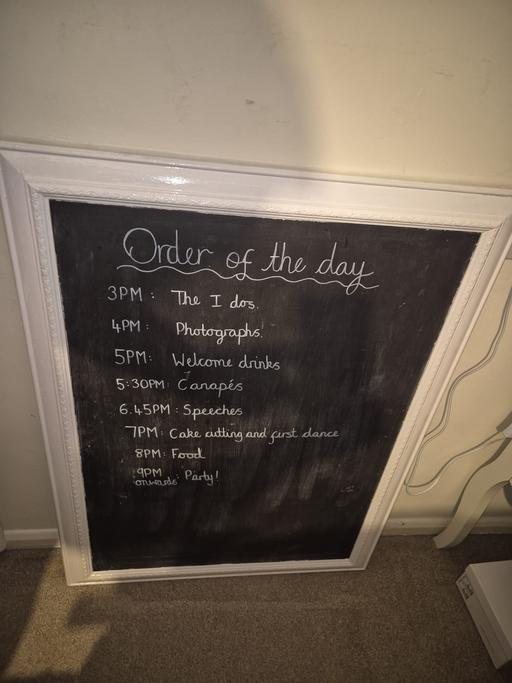 Order of the day
3PM: The I dos.
4PM: Photographs.
5PM: Welcome drinks
5:30PM: Canapés
6.45PM: Speeches
7PM: Cake cutting and first dance
8PM: Food
9PM
onwards: Party!